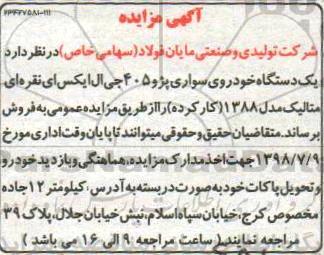 آگهی مزایده
۶۶۴۲۷۵۸۱-۱۱۱
شرکت تولیدی و صنعتی مایان فولاد (سهامی خاص) در نظر دارد
یک دستگاه خودروی سواری پژو ۴۰۵ جی ال ایکس ای نقره ای
متالیک مدل ۱۳۸۸ (کار کرده) را از طریق مزایده عمومی به فروش
برساند. متقاضیان حقیقی و حقوقی میتوانند تا پایان وقت اداری مورخ
۱۳۹۸/۷/۹ جهت اخذ مدارک مزایده، هماهنگی و بازدید خودرو
و تحویل پاکات خود به صورت دربسته به آدرس: کیلومتر ۱۲ جاده
مخصوص کرج، خیابان سپاه اسلام، نبش خیابان جلال، پلاک ۳۹
مراجعه نمایند. ( ساعت مراجعه ۹ الی ۱۶ می باشد )